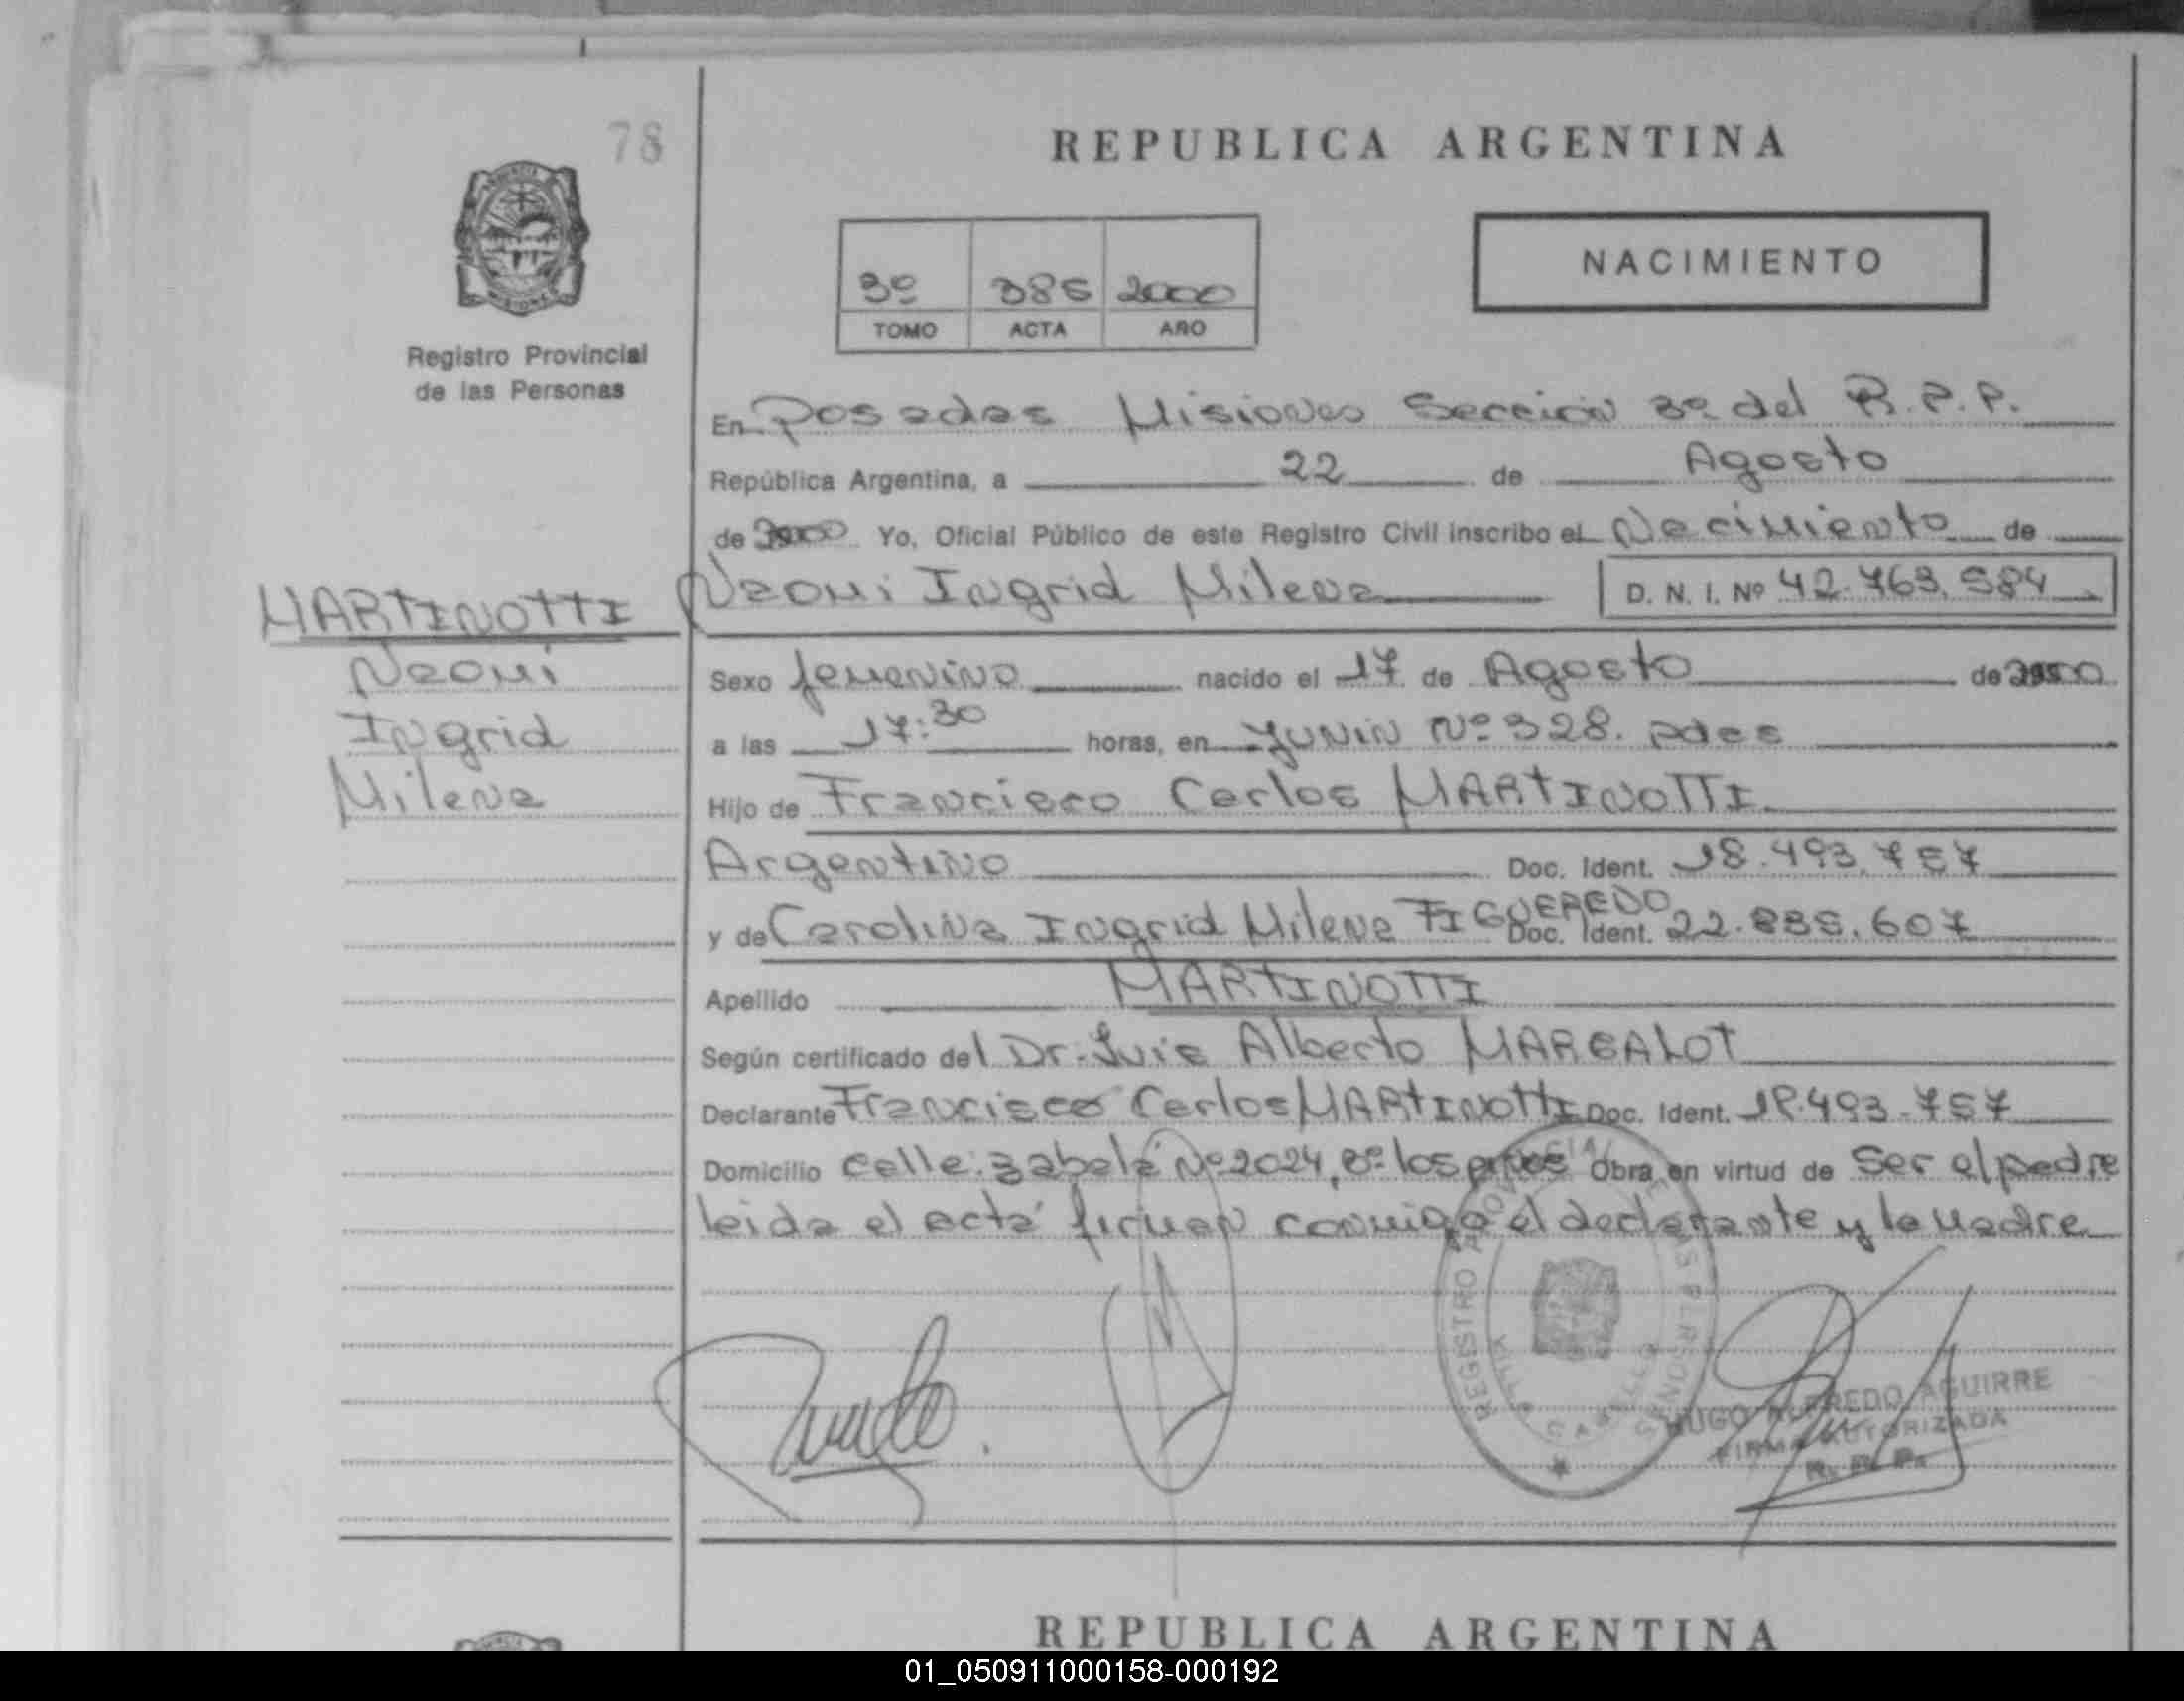 78
REPUBLICA ARGENTINA
NACIMIENTO
3º 385 2000
TOMO ACTA AÑO
Registro Provincial
de las Personas
En Posadas Misiones Sección 3º del R.P.P.
República Argentina, a 22 de Agosto
de 2000 Yo, Oficial Público de este Registro Civil inscribo el Nacimiento de
Naomi Ingrid Milena D. N. I. Nº 42.763.584
MARTINOTTI
Naomi
Ingrid
Milena
Sexo femenino nacido el 17 de Agosto de 2000
a las 17:30 horas, en Junin Nº 328. pdas
Hijo de Francisco Carlos MARTINOTTI
Argentino Doc. Ident. 18.493.757
y de Carolina Ingrid Milena FIGUEREDO Doc. Ident. 22.885.607
Apellido MARTINOTTI
Según certificado del Dr. Luis Alberto
Declarante Francisco Carlos MARTINOTTI Doc. Ident. 18.493.757
Domicilio calle: zabala Nº 2024, Bº los Obra en virtud de Ser el padre
leida el acta firman conmigo el declarante y la madre
REGISTRO PROVINCIAL DE LAS PERSONAS
VILLA CABELLO
HUGO ALFREDO AGUIRRE
FIRMA AUTORIZADA
R. P. P.
REPUBLICA ARGENTINA
01_050911000158-000192